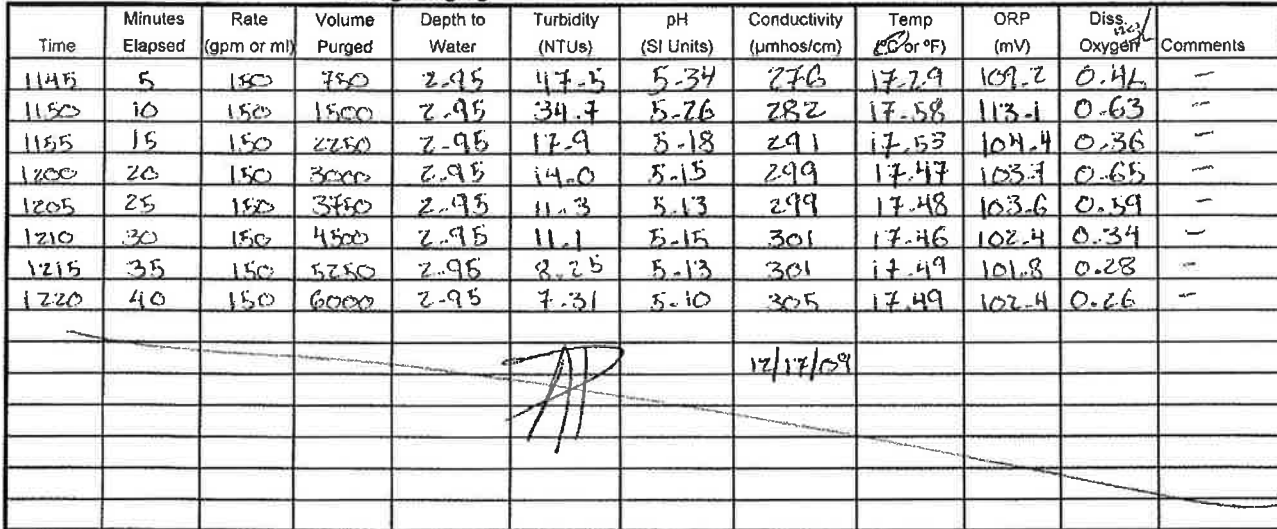 Time Minutes Elapsed Rate (gpm or ml) Volume Purged Depth to Water Turbidity (NTUs) pH (SI Units) Conductivity (µmhos/cm) Temp (°C or °F) ORP (mV) Diss. Oxygen Comments
1145 5 150 750 2.95 47.5 5.34 276 17.29 109.2 –
1150 10 150 1500 2.95 34.7 5.26 282 17.58 113.1 0.63 –
1155 15 150 2250 2.95 17.9 5.18 291 17.53 104.4 0.36 –
1200 20 150 3000 2.95 14.0 5.15 299 17.47 103.7 0.65 –
1205 25 150 3750 2.95 11.3 5.13 299 17.48 103.6 0.59 –
1210 30 150 4500 2.95 11.1 5.15 301 17.46 102.4 0.34 –
1215 35 150 5250 2.95 8.25 5.13 301 17.49 101.8 0.28 –
1220 40 150 6000 2.95 7.31 5.10 305 17.49 102.4 0.26 –
12/17/09